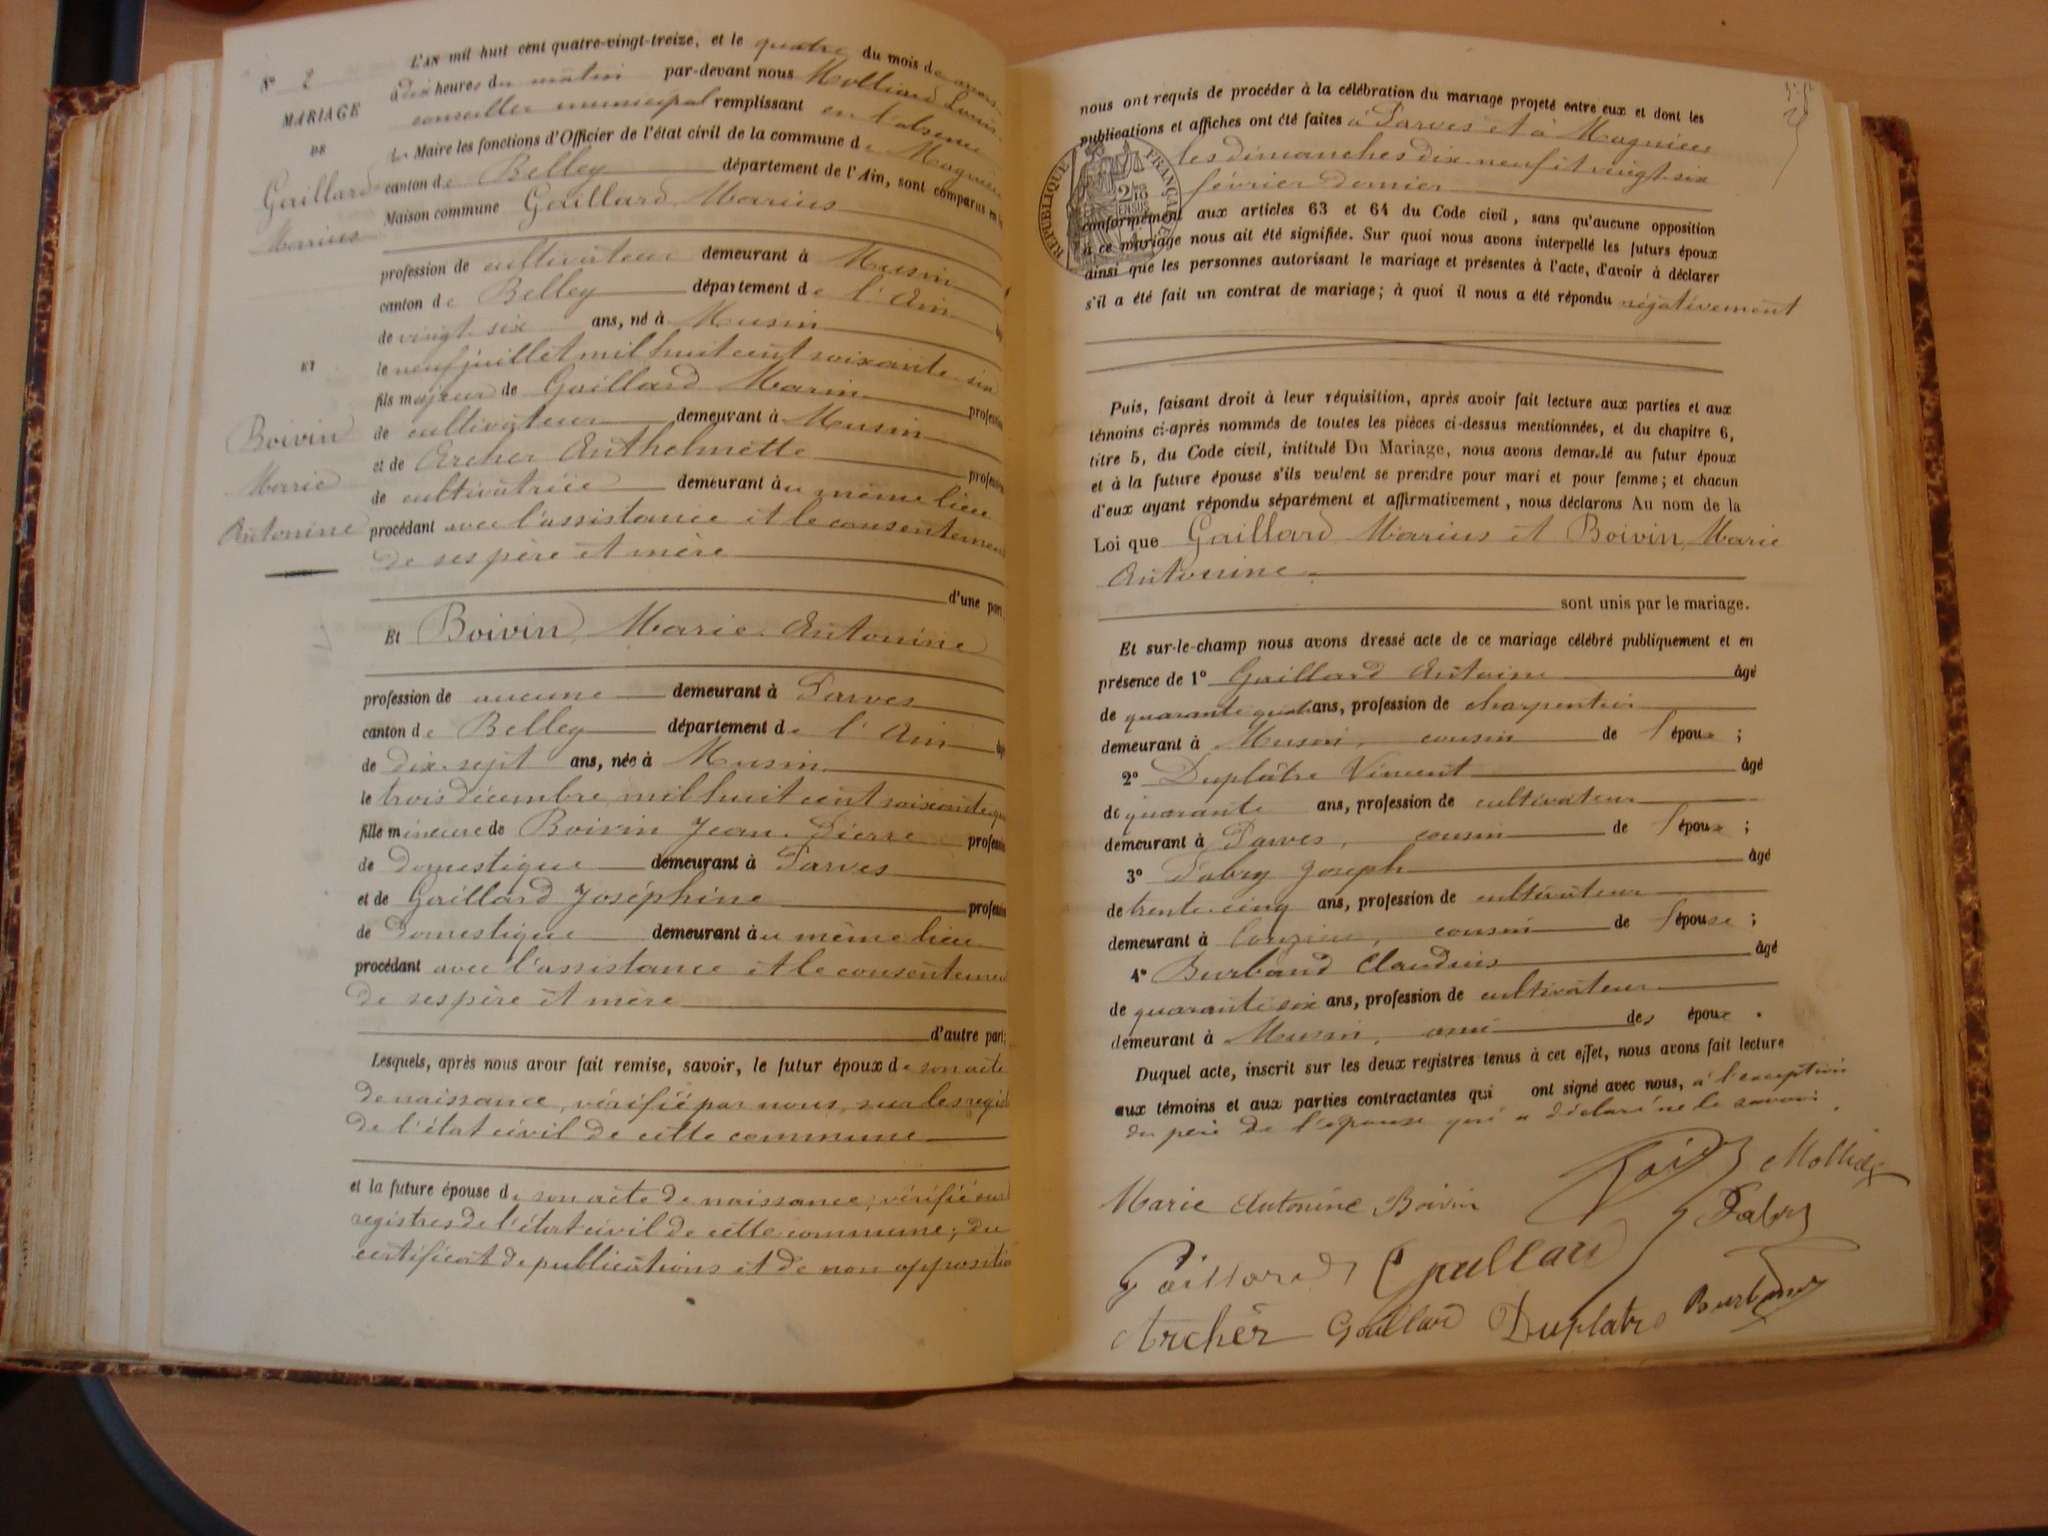 N° 2
MARIAGE
DE
Gaillard
Marius
ET
Boivin
Marie
Antonine
L'AN mil huit cent quatre-vingt-treize, et le quatre du mois de mars
à dix heures du matin par-devant nous Molliard Louis
conseiller municipal remplissant en l'absence
du Maire les fonctions d'Officier de l'état civil de la commune de Magnieu
canton de Belley département de l'Ain, sont comparus en la
Maison commune Gaillard Marius
profession de cultivateur demeurant à Musin
canton de Belley département de l'Ain
de vingt six ans, né à Musin
le neuf juillet mil huit cent soixante six
fils majeur de Gaillard Marin profession
de cultivateur demeurant à Musin
et de Archer Anthelmette profession
de cultivatrice demeurant au même lieu
procédant avec l'assistance et le consentement
de ses père et mère
d'une part,
Et Boivin Marie Antonine
profession de aucune demeurant à Parves
canton de Belley département de l'Ain âg
de dix-sept ans, née à Musin
le trois décembre mil huit cent soixante
fille mineure de Boivin Jean-Pierre profession
de domestique demeurant à Parves
et de Gaillard Joséphine profession
de domestique demeurant au même lieu
procédant avec l'assistance et le consentement
de ses père et mère
d'autre part;
Lesquels, après nous avoir fait remise, savoir, le futur époux de son acte
de naissance, vérifié par nous, sur les regist
de l'état civil de cette commune
et la future épouse de son acte de naissance, vérifié sur
registres de l'état civil de cette commune; du
certificat de publications et de non oppositio
nous ont requis de procéder à la célébration du mariage projeté entre eux et dont les
publications et affiches ont été faites à Parves et à Magnieu
les dimanches dix neuf et vingt-six
février dernier
conformément aux articles 63 et 64 du Code civil, sans qu'aucune opposition
à ce mariage nous ait été signifiée. Sur quoi nous avons interpellé les futurs époux
ainsi que les personnes autorisant le mariage et présentes à l'acte, d'avoir à déclarer
s'il a été fait un contrat de mariage; à quoi il nous a été répondu négativement
RÉPUBLIQUE FRANÇAISE
Puis, faisant droit à leur réquisition, après avoir fait lecture aux parties et aux
témoins ci-après nommés de toutes les pièces ci-dessus mentionnées, et du chapitre 6,
titre 5, du Code civil, intitulé Du Mariage, nous avons demandé au futur époux
et à la future épouse s'ils veulent se prendre pour mari et pour femme; et chacun
d'eux ayant répondu séparément et affirmativement, nous déclarons Au nom de la
Loi que Gaillard Marius et Boivin, Marie
Antonine
sont unis par le mariage.
Et sur-le-champ nous avons dressé acte de ce mariage célébré publiquement et en
présence de 1° Gaillard Antoine âgé
de quarante quatre ans, profession de charpentier
demeurant à Musin, cousin de l'époux;
2° Duplâtre Vincent âgé
de quarante ans, profession de cultivateur
demeurant à Parves, cousin de l'époux;
3° Fabry Joseph âgé
de trente-cinq ans, profession de cultivateur
demeurant à cousin de l'épouse;
4° Burband Claudius âgé
de quarante six ans, profession de cultivateur
demeurant à Musin, ami des époux.
Duquel acte, inscrit sur les deux registres tenus à cet effet, nous avons fait lecture
aux témoins et aux parties contractantes qui ont signé avec nous, à l'exception
du père de l'épouse qui a déclaré ne le savoir.
Marie Antonine Boivin
Fabry
Gaillard Gaillard
Archer Gaillard Duplatre Burband